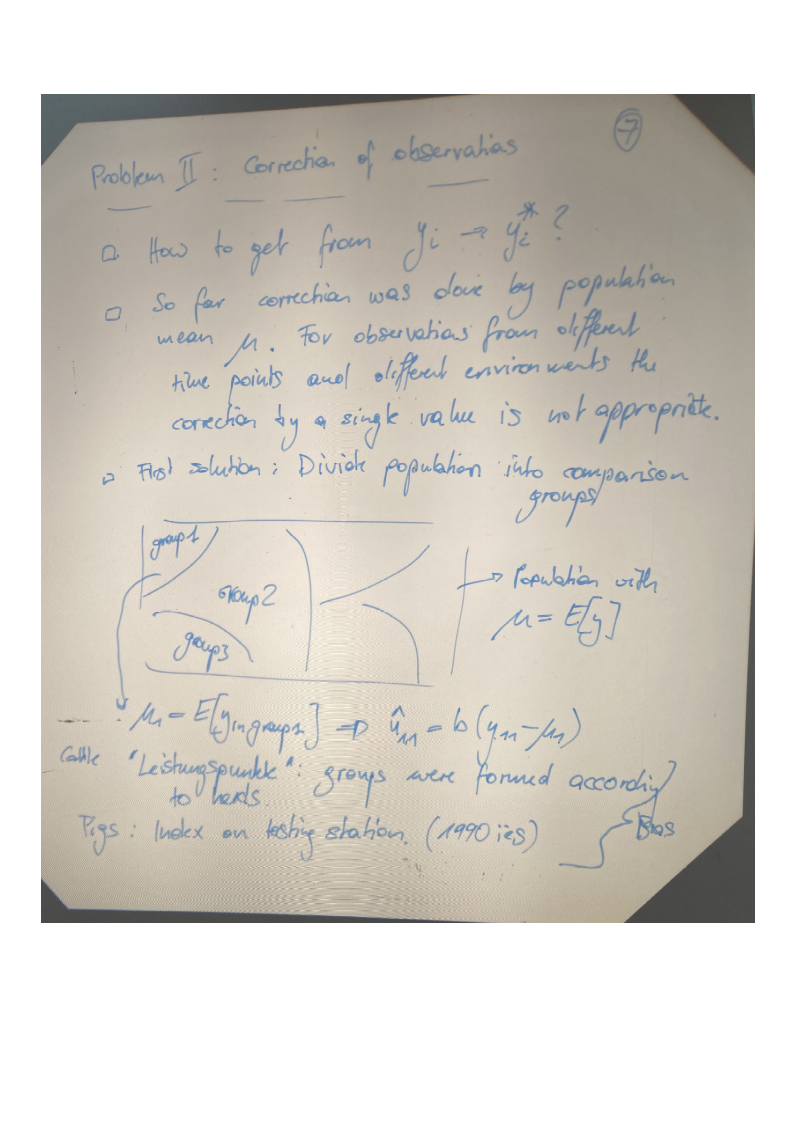 7
Problem II : Correction of observations
□ How to get from yi → yi* ?
□ So far correction was done by population
mean μ. For observations from different
time points and different environments the
correction by a single value is not appropriate.
□ First solution : Divide population into comparison
groups
group1
group2
group3
→ Population with
μ = E[y]
μ1 = E[y in group1] ⇒ û11 = b(y11 − μ1)
Cattle "Leistungspunkte" : groups were formed according
to herds.
Pigs : Index on testing station. (1990ies)
Bias